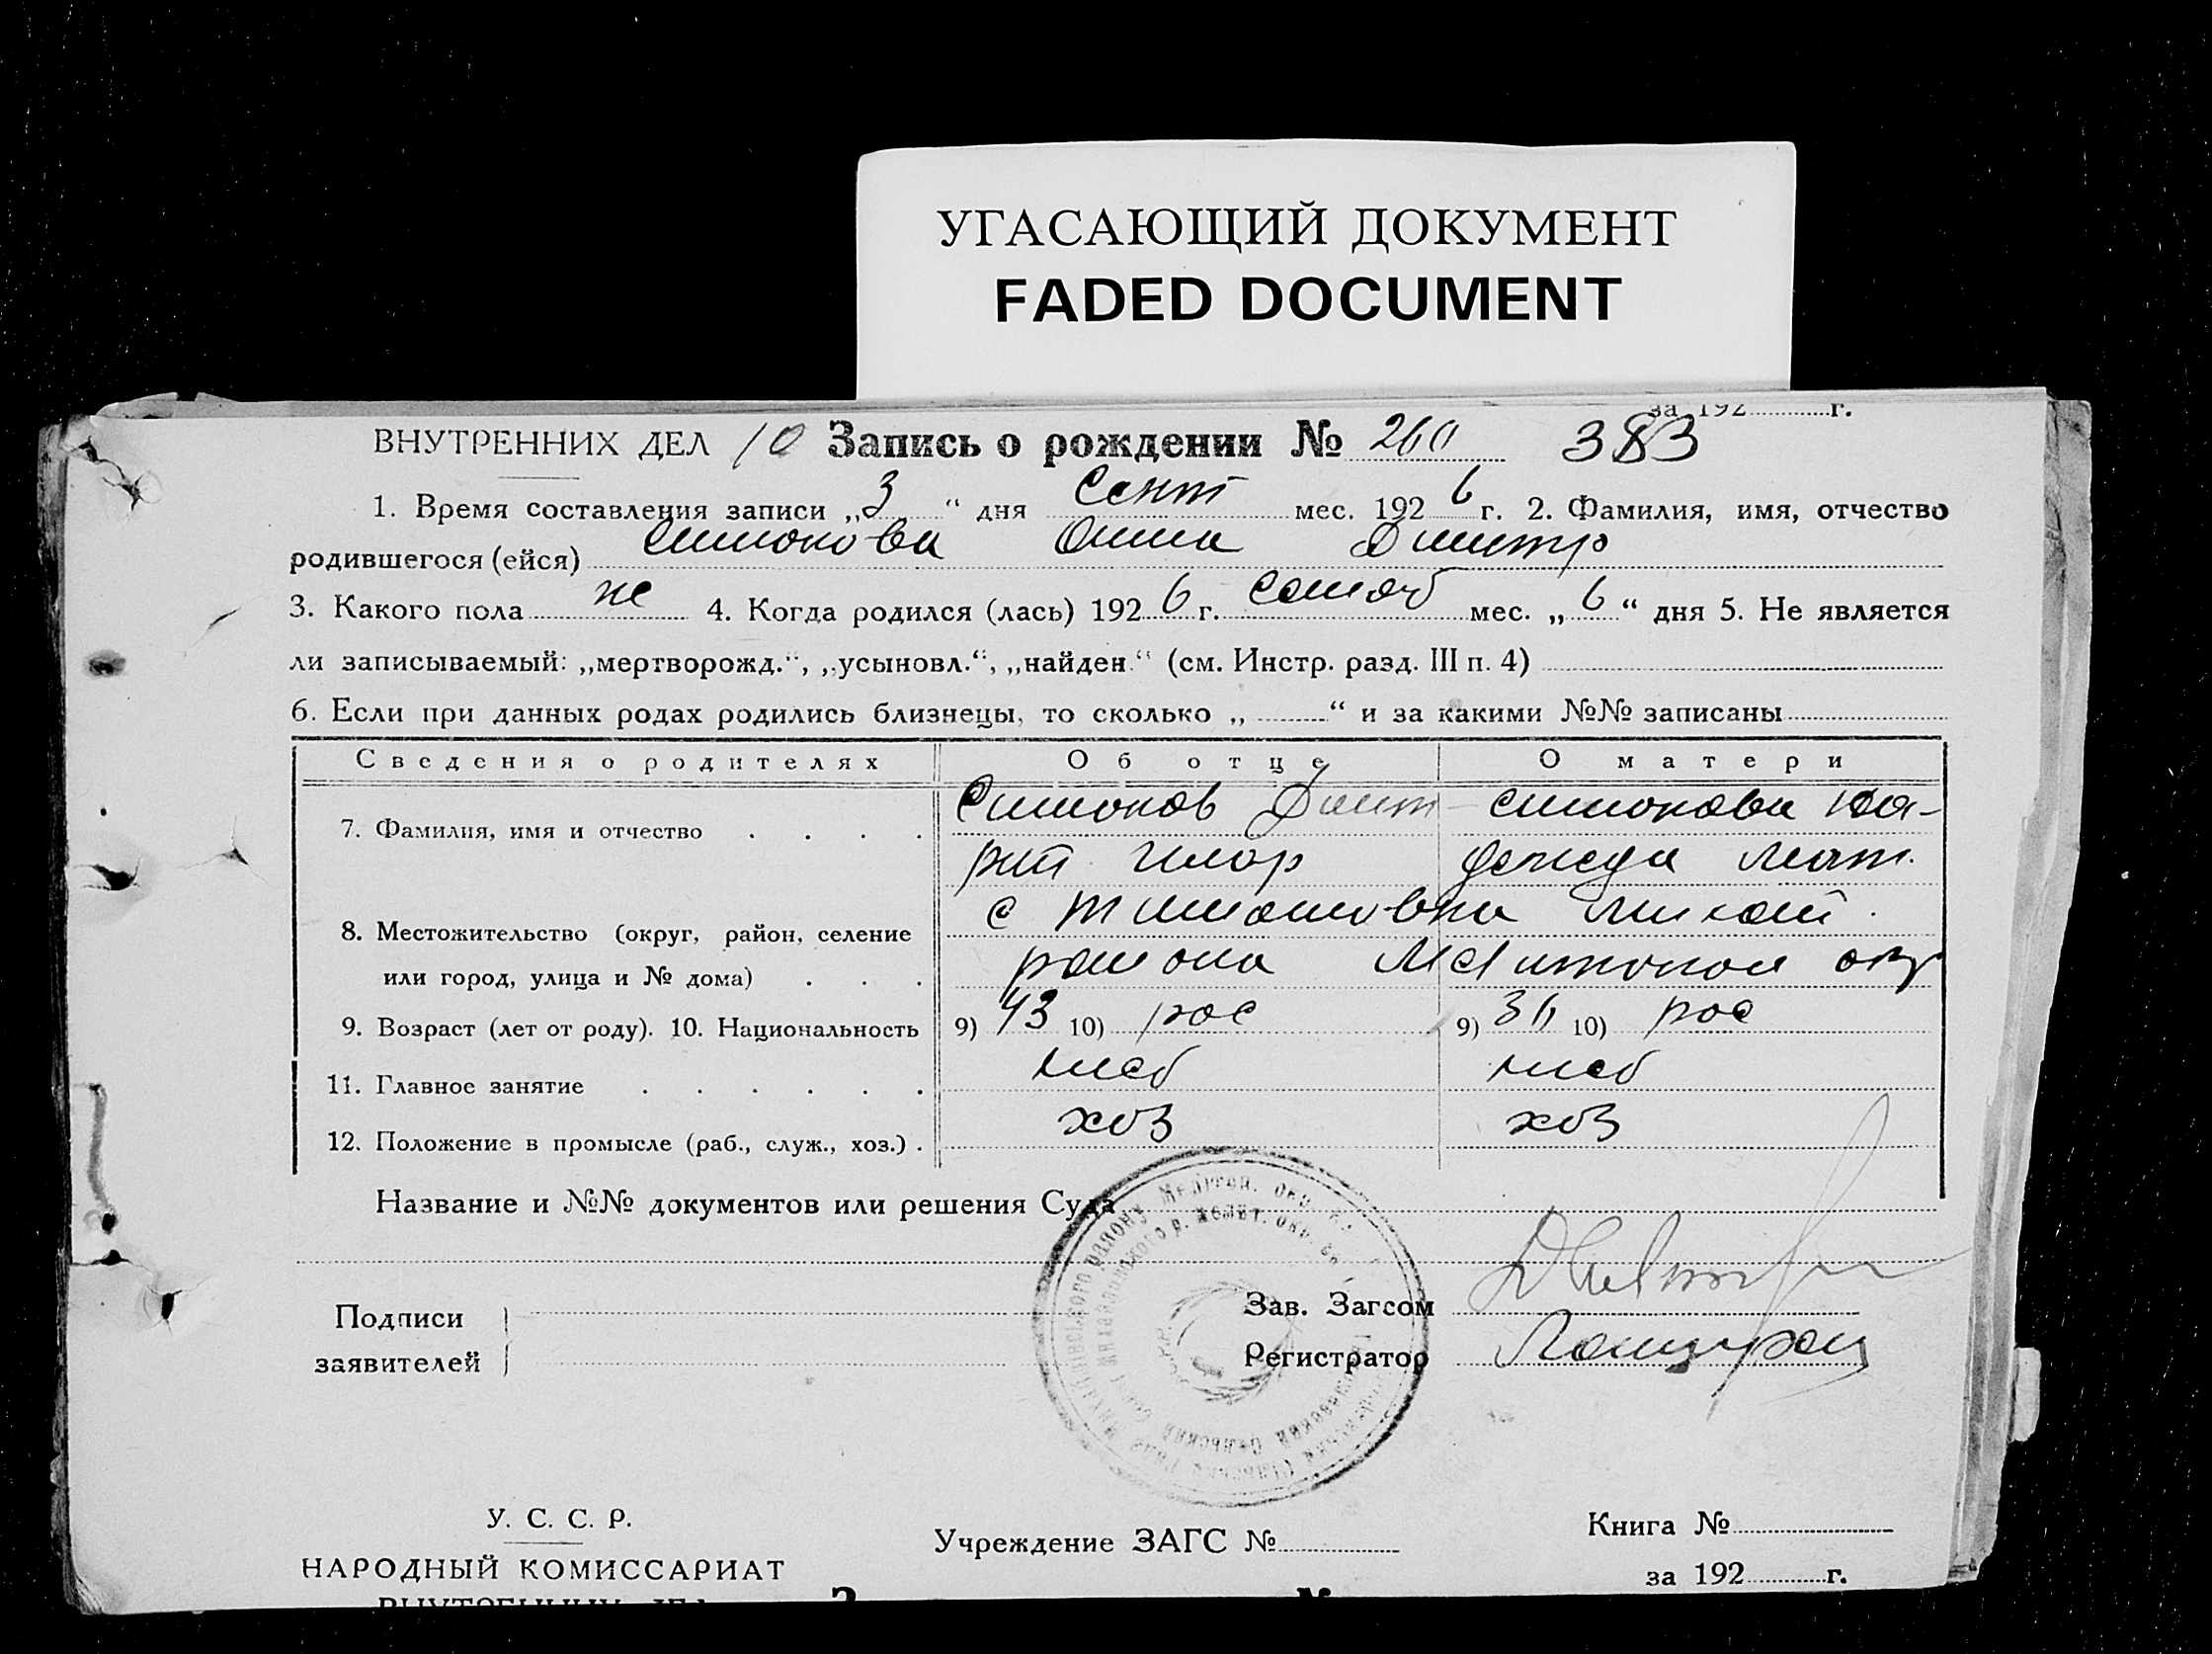 УГАСАЮЩИЙ ДОКУМЕНТ
FADED DOCUMENT
за 192 г.
ВНУТРЕННИХ ДЕЛ 10 Запись о рождении № 260 383
1. Время составления записи „3“ дня Сент мес. 1926 г. 2. Фамилия, имя, отчество
родившегося (ейся) Симонова Анна Дмитр
3. Какого пола же 4. Когда родился (лась) 1926 г. мес. „6“ дня 5. Не является
ли записываемый: „мертворожд.“, „усыновл.“, „найден.“ (см. Инстр. разд. III п. 4)
6. Если при данных родах родились близнецы, то сколько „ “ и за какими №№ записаны
Сведения о родителях Об отце О матери
7. Фамилия, имя и отчество Симонов Дмит- Симонова На-
рий дежда Мат.
с Тимошовка Михай.
8. Местожительство (округ, район, селение
района Мелитопол окр
или город, улица и № дома)
9. Возраст (лет от роду). 10. Национальность 9) 43 10) рос 9) 36 10) рос
11. Главное занятие хлеб хлеб
12. Положение в промысле (раб., служ., хоз.) хоз хоз
Название и №№ документов или решения Суда
Подписи
заявителей
Зав. Загсом
Регистратор
У. С. С. Р.
НАРОДНЫЙ КОМИССАРИАТ
Учреждение ЗАГС №
Книга №
за 192 г.